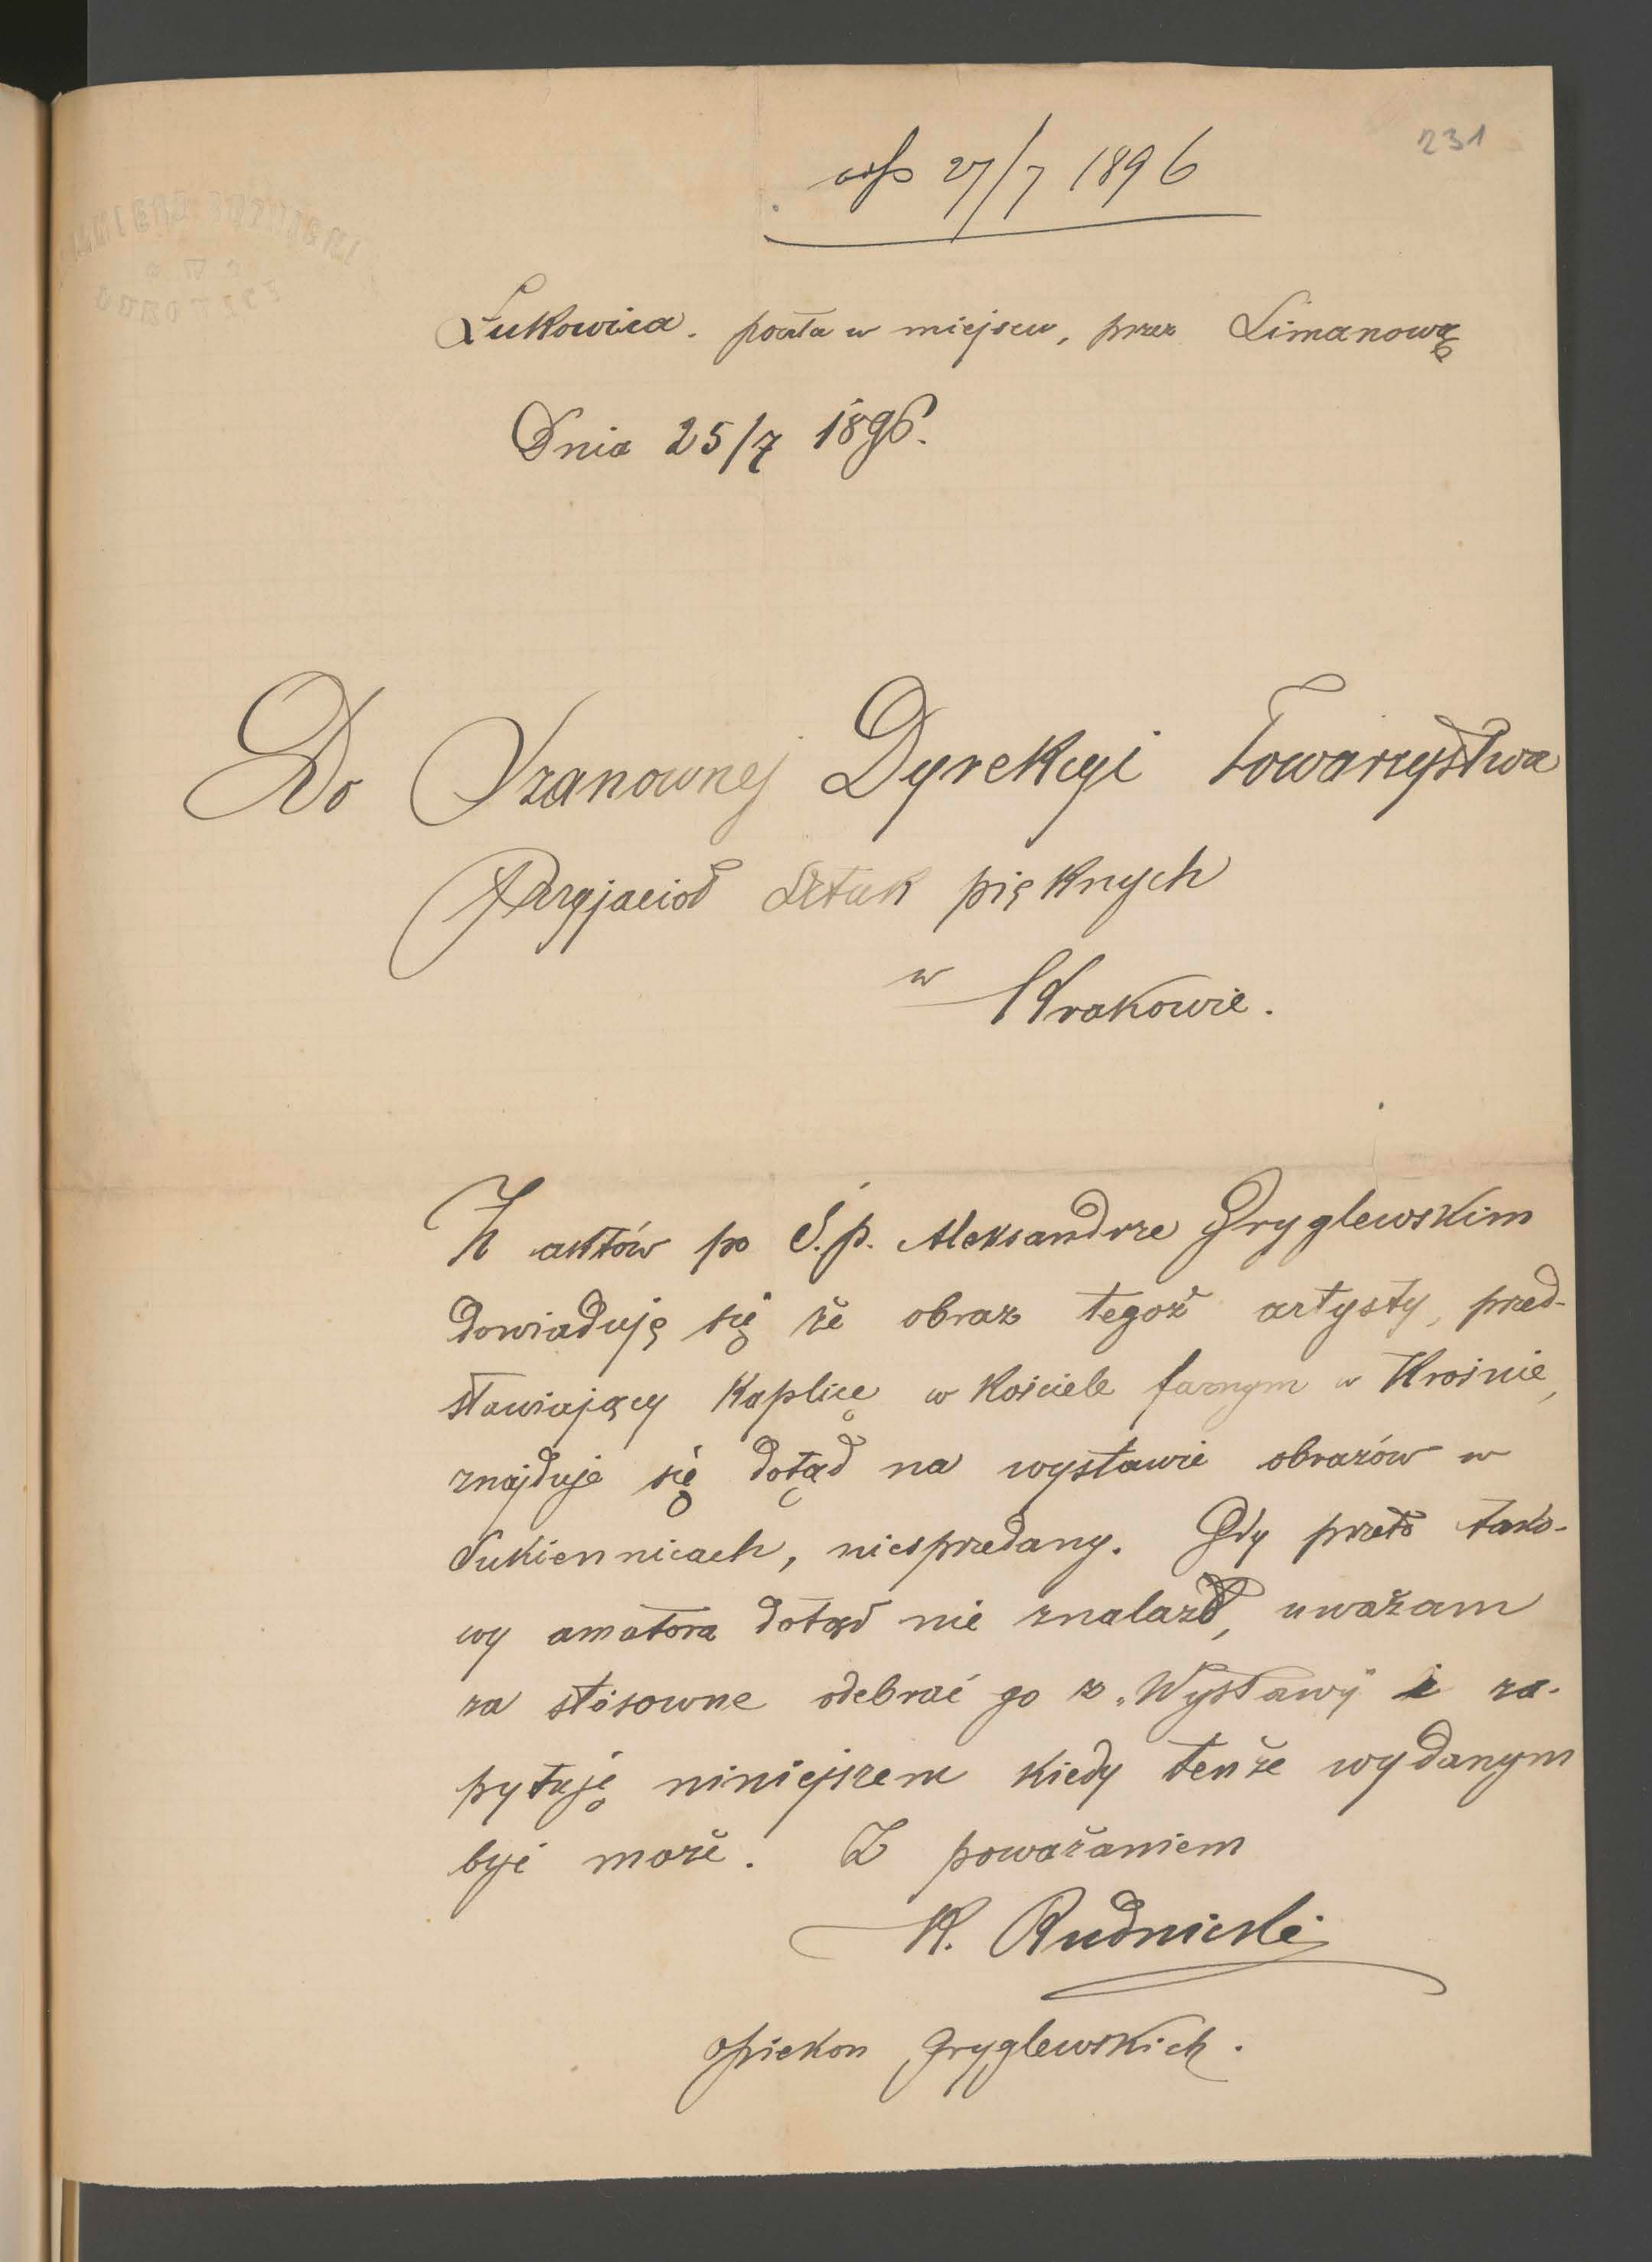 231
odp 27/7 1896
Łukowica. poczta w miejscu, przez Limanowę
Dnia 25/7 1896.
Do Szanownej Dyrekcyi Towarzystwa
Przyjaciół Sztuk pięknych
w Krakowie.
Z aktów po Ś.p. Aleksandrze Gryglewskim
dowiaduję się że obraz tegoż artysty, przed-
stawiający Kaplicę w Kościele farnym w Krośnie,
znajduje się dotąd na wystawie obrazów w
Sukiennicach, niesprzedany. Gdy przeto tako-
wy amatora dotąd nie znalazł, uważam
za stósowne odebrać go z „Wystawy" i za-
pytuję niniejszem kiedy tenże wydanym
być może. Z poważaniem
K. Rudnicki
opiekun Gryglewskich.